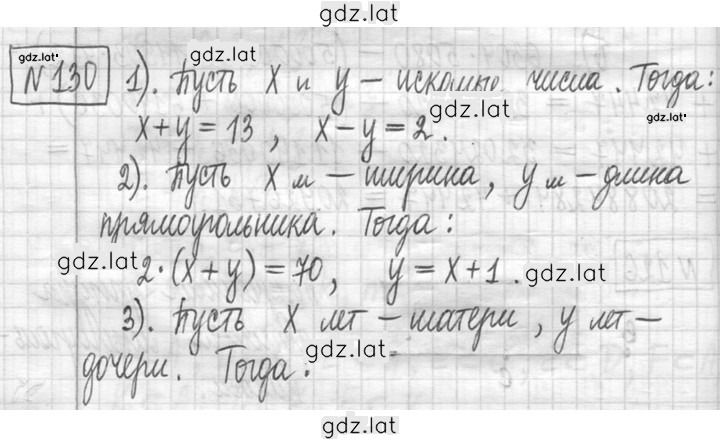 gdz.lat
gdz.lat gdz.lat
№130 1). Пусть x и y – искомые числа. Тогда:
gdz.lat gdz.lat
x+y=13, x-y=2.
2). Пусть x м – ширина, y м – длина
прямоугольника. Тогда:
gdz.lat 2·(x+y)=70, y=x+1. gdz.lat
3). Пусть x лет – матери, y лет –
gdz.lat
дочери. Тогда:
gdz.lat